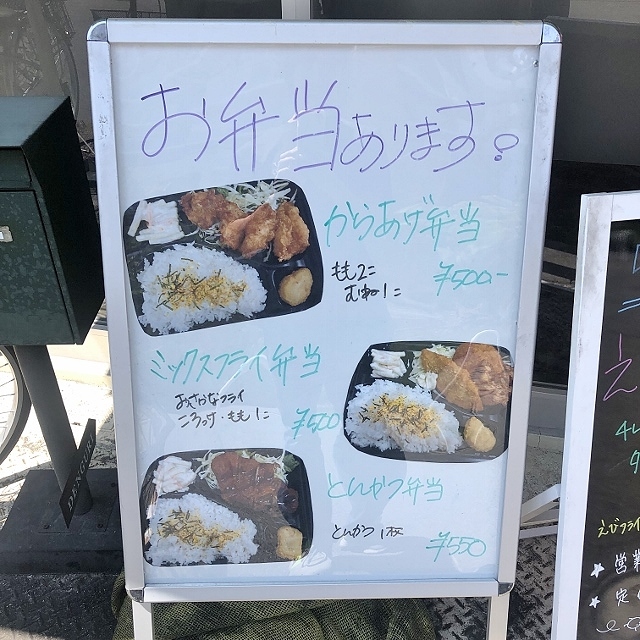 お弁当あります。
からあげ弁当
もも2こ
むね1こ
¥500-
ミックスフライ弁当
おさかなフライ
ころっけ・もも1こ
¥500
とんかつ弁当
とんかつ1枚
¥550
えびフライ
★営業
★定